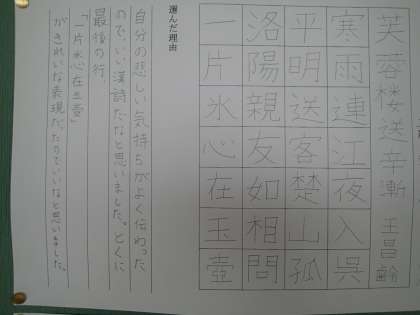 芙蓉楼送辛漸 王昌齢
寒雨連江夜入呉
平明送客楚山孤
洛陽親友如相問
一片氷心在玉壺
選んだ理由
自分の悲しい気持ちがよく伝わった
ので、いい漢詩だなと思いました。とくに
最後の行、
「一片氷心在玉壺」
がきれいな表現だったのでいいなと思いました。